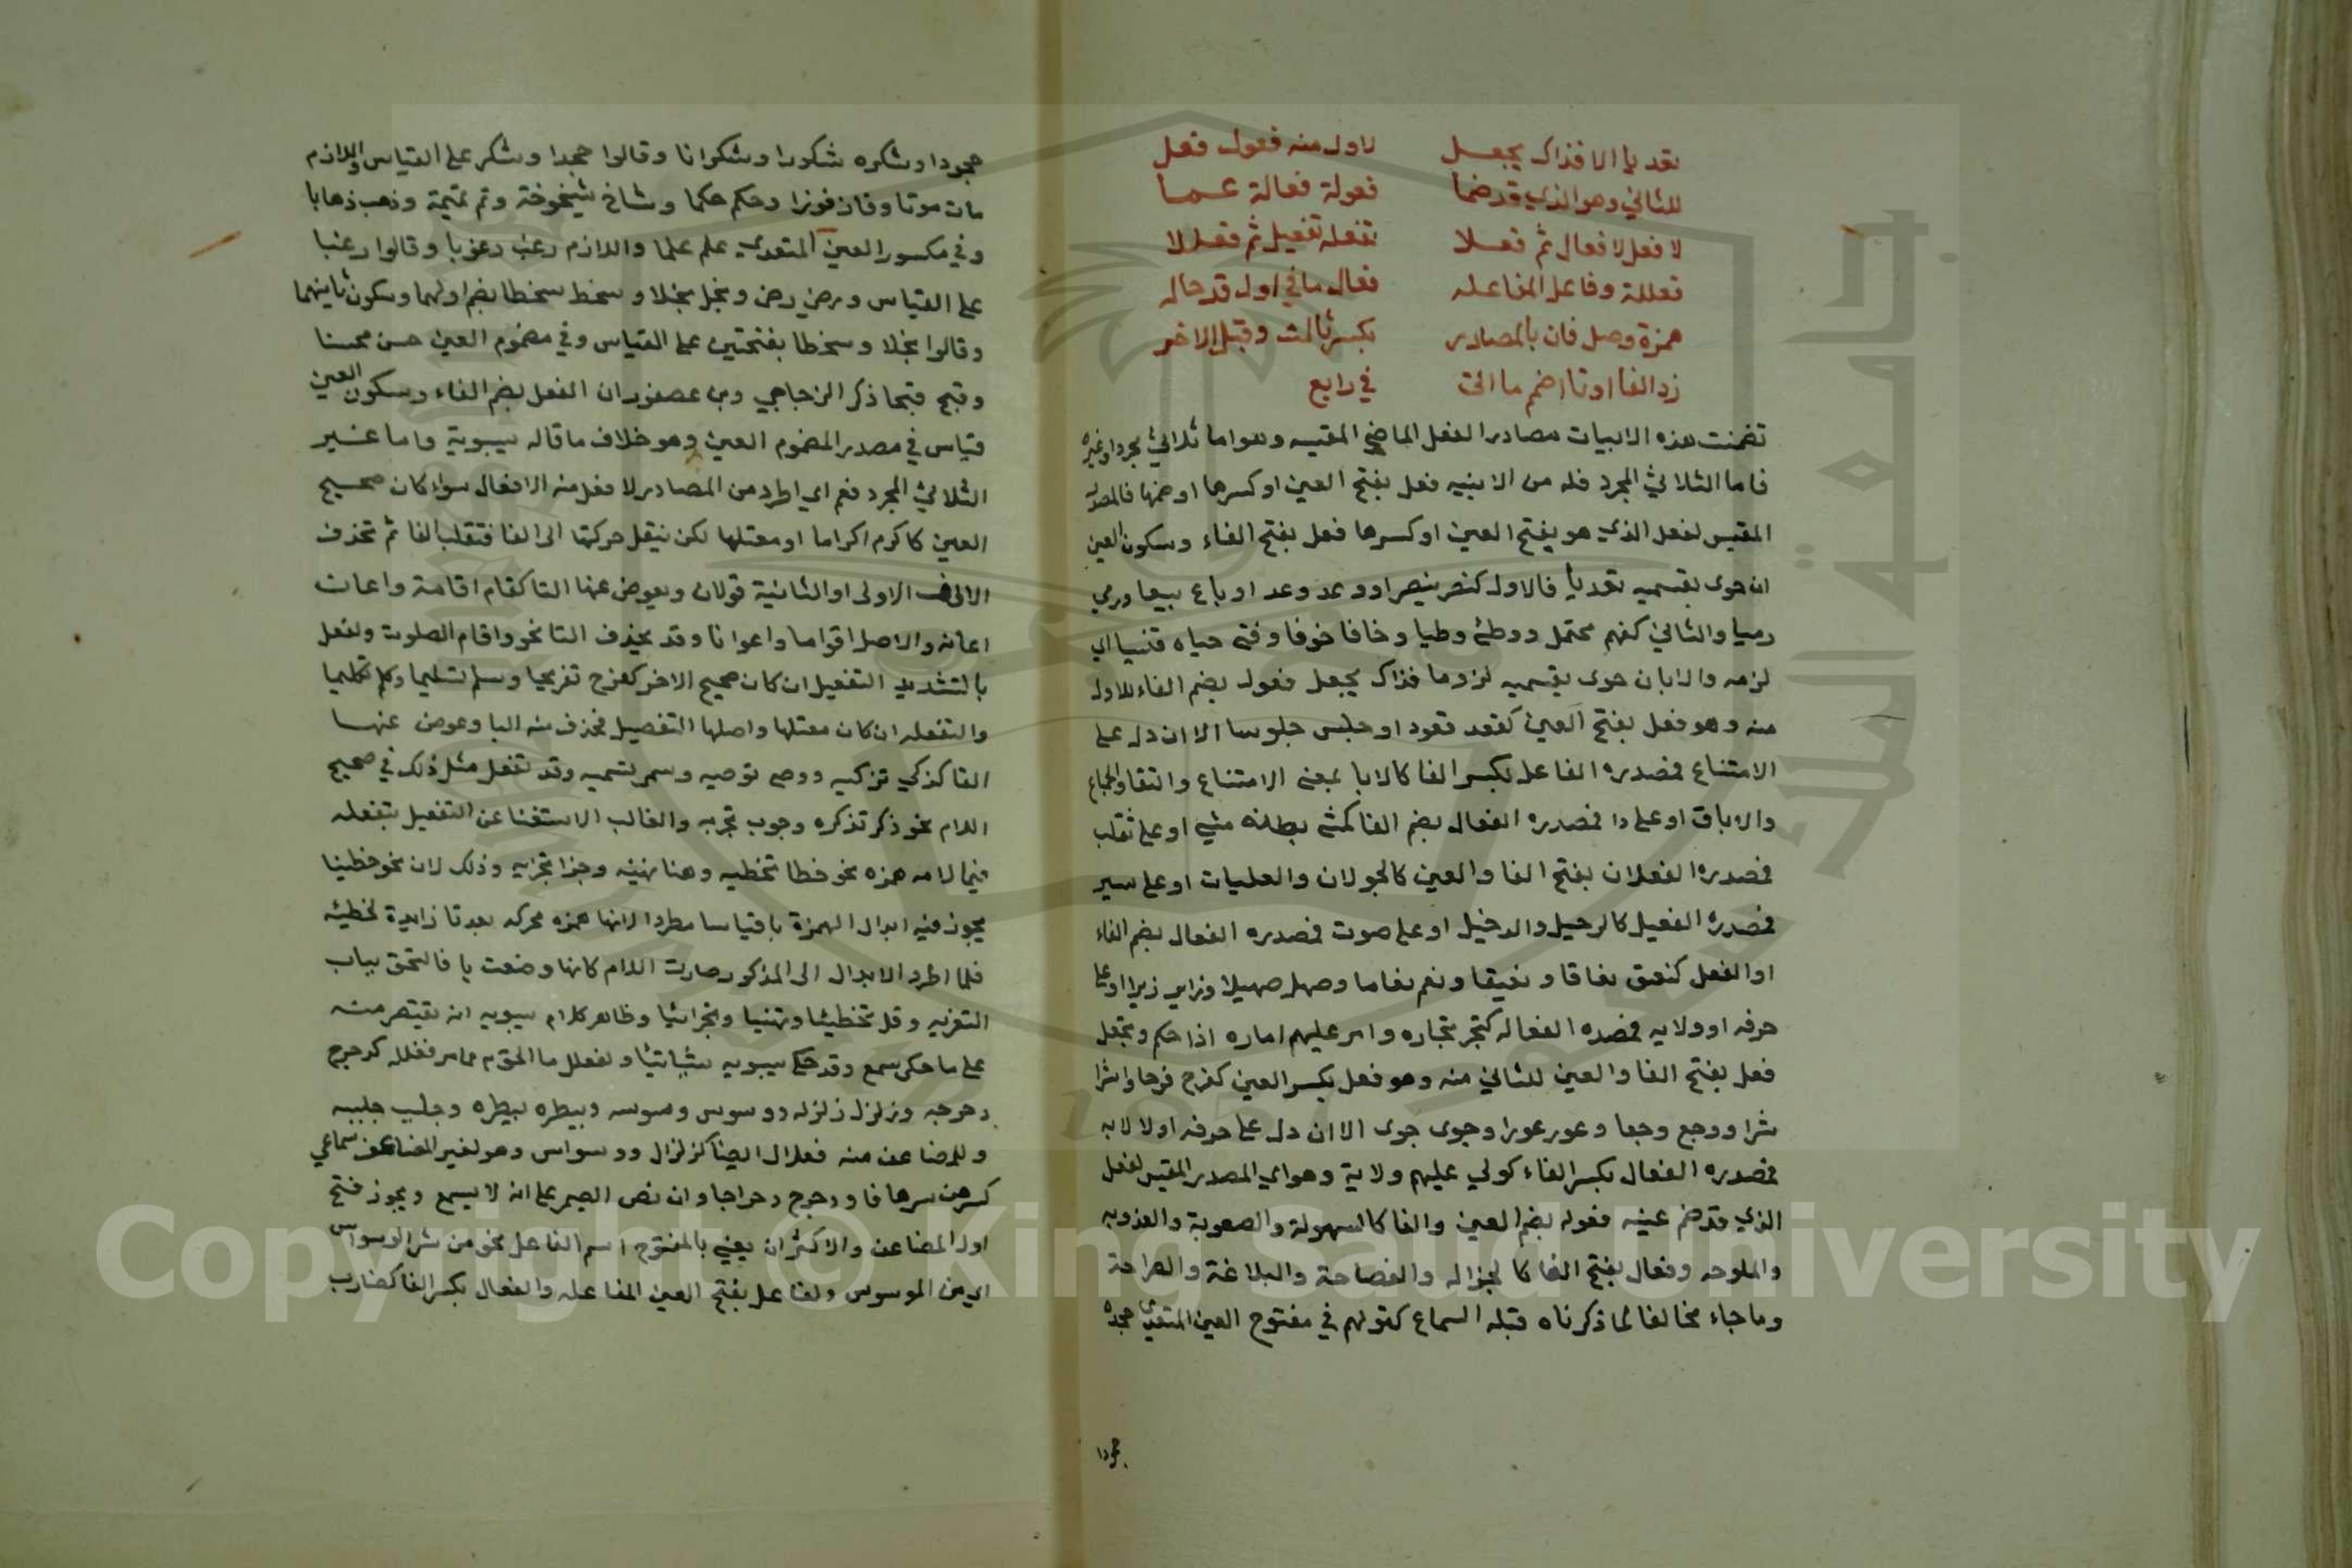 تعديا الا فذاك يجعل لاول منه فعول فعل
للثاني وهو الذي قد ضما فعولة فعالة عما
لا فعل لا فعال ثم فعلا تفعله تفعيل ثم فعللا
فعللة وفاعل المفاعله فعال ما في اول قد حاله
همزة وصل فان بالمصادر بكسر ثالث وقبل الاخر
زد الفا او تا اضم ما التي في رابع
تضمنت هذه الابيات مصادر الفعل الماضي المقيسه وهو اما ثلاثي مجرد او غيره
فاما الثلاثي المجرد فله من الابنيه فعل بفتح العين او كسرها او ضمها فالمصدر
المقيس لفعل الذي هو بفتح العين او كسرها فعل بفتح الفاء وسكون العين
ان حوى بقسميه تعديا فالاول كنصر ينصر او وعد وعد او باع بيعا ورمي
رميا والثاني كفهم محتمل ووطئ وطيا وخافا خوفا وفنى حياه اي
لزمه والا بان حوى بقسميه لزوما فذاك يجعل فعول بضم الفاء للاول
منه وهو فعل بفتح العين كقعد قعود او جلس جلوسا الا ان دل على
الامتناع فمصدره الفاعل بكسر الفا كالابا بمعنى الامتناع والنفا والجماع
والاباق او على دا فمصدره الفعال بضم الفا كمشى بطنه مشي او على تقلب
فمصدره الفعلان بفتح الفا والعين كالجولان والعليات او على سير
فمصدره الفعيل كالرحيل والدخيل او على صوت فمصدره الفعال بضم الفاء
او الفعل كنعق نعاقا ونعيقا ونغم نغاما وصهل صهيلا وزاير زيرا او على
حرفه او ولايه فمصدره الفعاله كتجر تجاره وامر عليهم اماره اذا حكم وتجعل
فعل بفتح الفا والعين للثاني منه وهو فعل بكسر العين كفرح فرحا واشرا
شرا ووجع وجعا وعور عورا وجوى جوى الا ان دل على حرفه او لا لايه
فمصدره الفعال بكسر الفاء كولي عليهم ولاية وهو اي المصدر المقيس لفعل
الذي قد ضم عينه فعوله بضم العين والفا كالسهولة والصعوبة والعذوبه
والملوحه وفعال بفتح الفا كا لجزاله والفصاحة والبلاغة والصراحة
وما جاء مخالفا لما ذكرناه قبله السماع كقولهم في مفتوح العين المتعدي جحده
جحودا
جحودا وشكره شكورا وشكوانا وقالوا جحدا وشكر على القياس واللازم
مات موتا وفاز فوزا وحكم حكما وشاخ شيخوخة وتم تميمة وذهب ذهابا
وفي مكسور العين المتعدي علم علما واللازم رغب رغوبا وقالوا رغبا
على القياس ومرض رض وبخل بخلا وسخط سخطا بضم اولهما وسكون ثانيهما
وقالوا بخلا وسخطا بفتحتين على القياس وفي مضموم العين حسن محسنا
وقبح قبحا ذكر الزجاجي وبن عصفور ان الفعل بضم الفاء وسكون العين
قياس في مصدر المضموم العين وهو خلاف ما قاله سيبوية واما غير
الثلاثي المجرد فعم اي اطرد من المصادر لا فعل منه الا فعال سواء كان صحيح
العين كاكرم اكراما او معتلها لكن ينقل حركتها الى الفا فتقلب الفا ثم تحذف
الالف الاولى او الثانية قولان ويعوض عنها التا كقام اقامة واعان
اعانه والاصل اقواما واعوانا وقد يحذف التا نحو واقام الصلوت ولفعل
بالتشديد التفعيل ان كان صحيح الاخر كفرح تفريحا وسلم تسليما وكلم تكليما
والتفعله ان كان معتلها واصلها التفصيل فحذف منه اليا وعوض عنها
التا كزكي تزكيه ووصى توصيه وسمى تسميه وقد تفعل مثل ذلك في صحيح
اللام نحو ذكر تذكره وجوب تجربه والغالب الاستغنا عن التفعيل بتفعله
فيما لامه همزه نحو خطا تخطيه وهنا تهنئه وجزا تجزيه وذلك لان نحو خطينا
يجوز فيه ابدال الهمزة يا قياسا مطردا لانها همزه محركه بعد يا زايدة لخطيئه
فلما اطرد الابدال الى المذكور صارت اللام كانها وضعت يا فالتحق بباب
التعزيه وقل تخطيئا وتهنيا وتجزائيا وظاهر كلام سيبويه انه يقتصر منه
على ما حكى سمع وقد حكى سيبويه ولفعلل ما الحق به مما مر فعلله كدحرج
دحرجه وزلزل زلزله ووسوس وسوسه وبيطره بيطره وجلبب جلببه
وللمضاعف منه فعلال ايضا كزلزال ووسواس وهو لغير المضاعف سماعي
كسرهف سرهافا ودحرج دحراجا وان نص الصيمر على انه لا يسمع ويجوز فتح
اول المضاعف والاكثر ان يعني بالمفتوح اسم الفاعل نحو من شر الوسواس
اي من الموسوس ولفاعل بفتح العين المفاعله والفعال بكسر الفا كضارب
Copyright © King Saud University
جامعة الملك سعود
1957